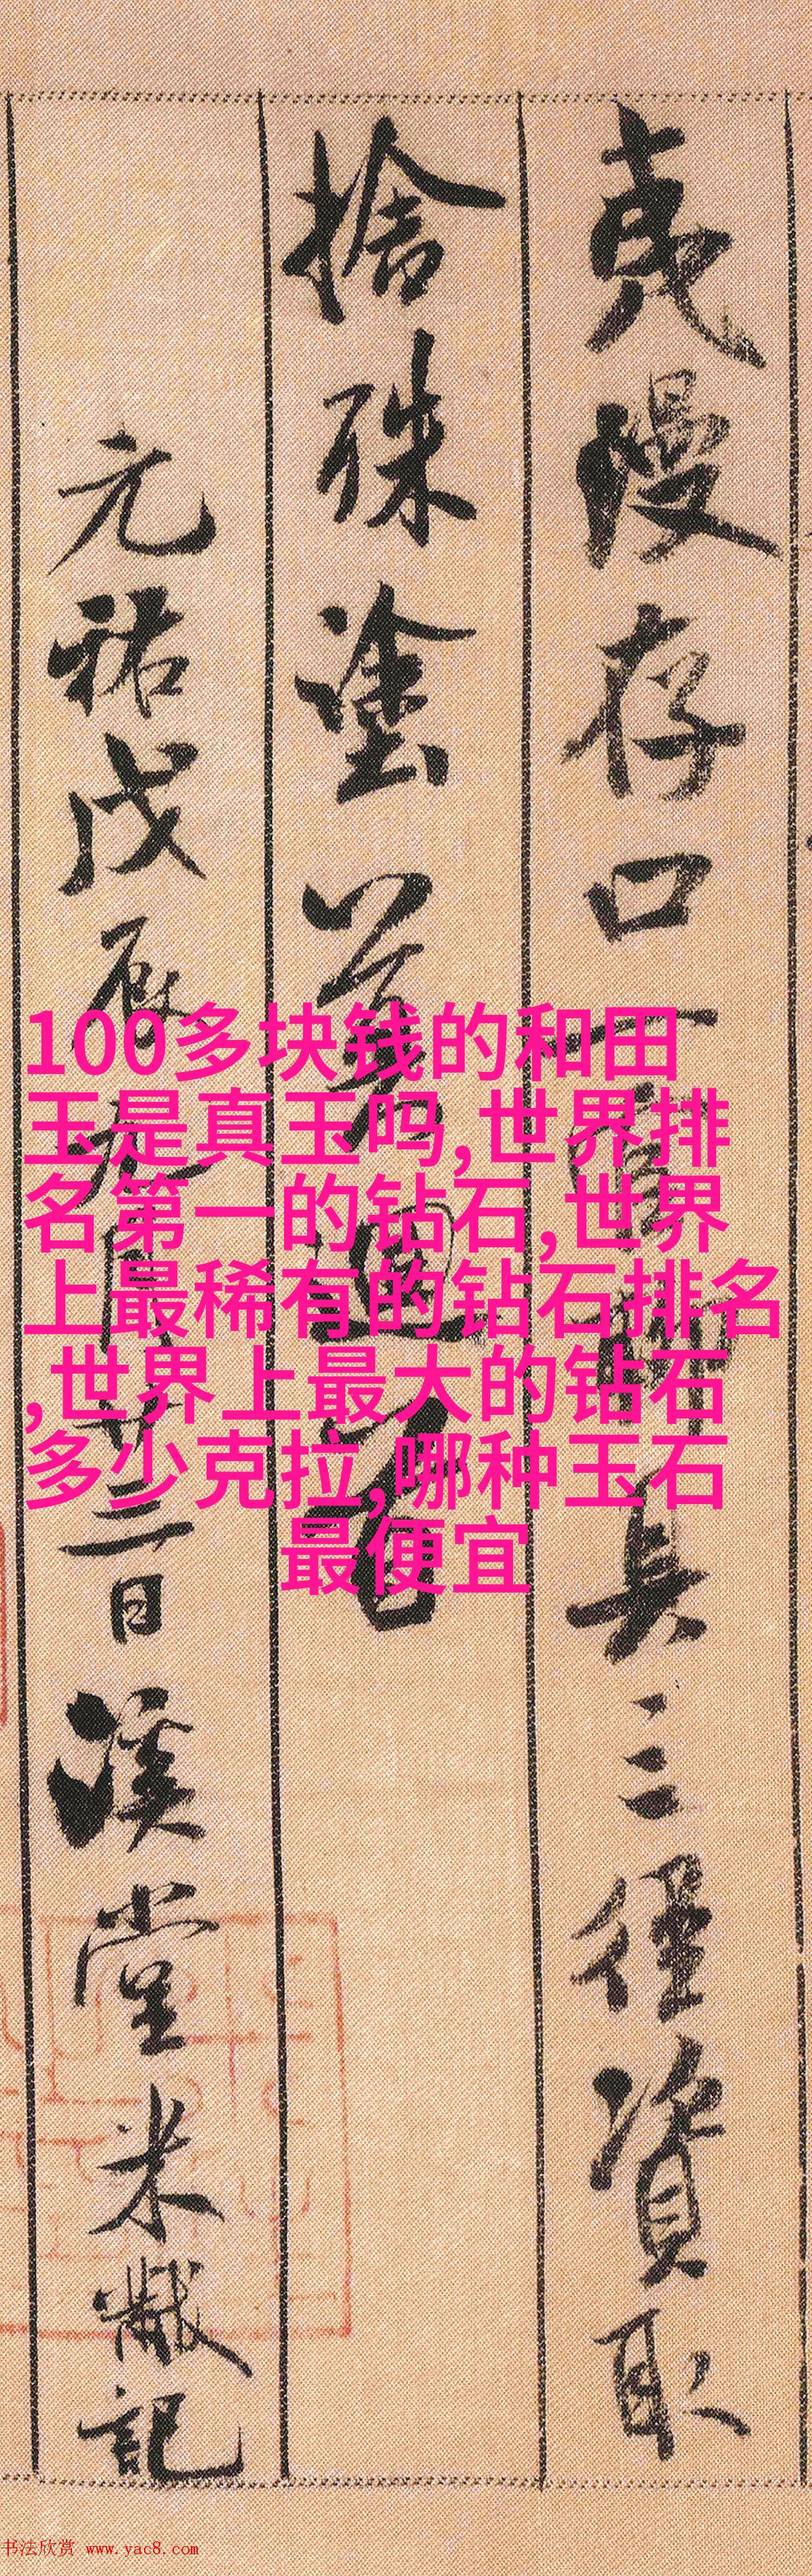 夷漫存口一官聊具三徑資取
捨殊塗莫迴首
元祐戊辰九月廿三日溪堂米黻記
100多块钱的和田
玉是真玉吗,世界排
名第一的钻石,世界
上最稀有的钻石排名
,世界上最大的钻石
多少克拉,哪种玉石
最便宜
书法欣赏 www.yac8.com